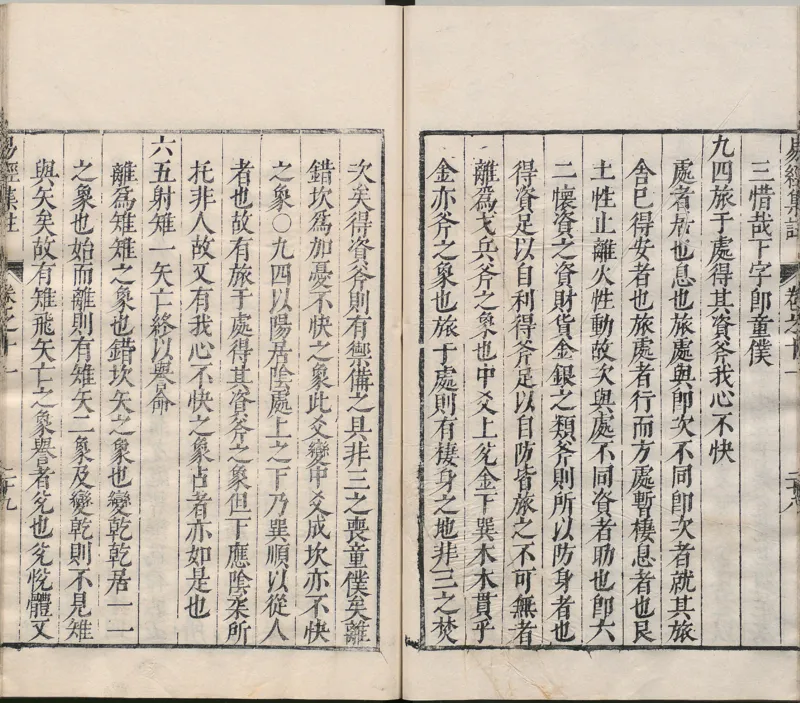 易經集註
三惜哉下字即童僕
九四旅于處得其資斧我心不快
處者居也息也旅處與即次不同即次者就其旅
舍已得安者也旅處者行而方處暫棲息者也艮
土性止離火性動故次與處不同資者助也即六
二懷資之資財貨金銀之類斧則所以防身者也
得資足以自利得斧足以自防皆旅之不可無者
離爲戈兵斧之象也中爻上兌金下巽木木貫乎
金亦斧之象也旅于處則有棲身之地非三之焚
次矣得資斧則有禦備之具非三之喪童僕矣離
錯坎爲加憂不快之象此爻變中爻成坎亦不快
之象○九四以陽居陰處上之下乃巽順以從人
者也故有旅于處得其資斧之象但下應陰柔所
托非人故又有我心不快之象占者亦如是也
六五射雉一矢亡終以譽命
離爲雉雉之象也錯坎矢之象也變乾乾居一一
之象也始而離則有雉矢二象及變乾則不見雉
與矢矣故有雉飛矢亡之象譽者兌也兌悅體又
易經集註 卷之十一 二十九